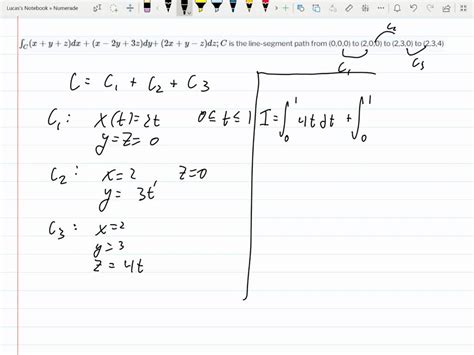 Lucas's Notebook » Numerade
∫_C(x + y + z)dx + (x − 2y + 3z)dy+ (2x + y − z)dz; C is the line-segment path from (0,0,0) to (2,0,0) to (2,3,0) to (2,3,4)
C₂
C₁
C₃
C = C₁ + C₂ + C₃
C₁: x(t)=2t 0≤t≤1
y=z=0
C₂: x=2 z=0
y= 3t
C₃: x=2
y=3
z=4t
I=∫₀¹ 4t dt + ∫₀¹